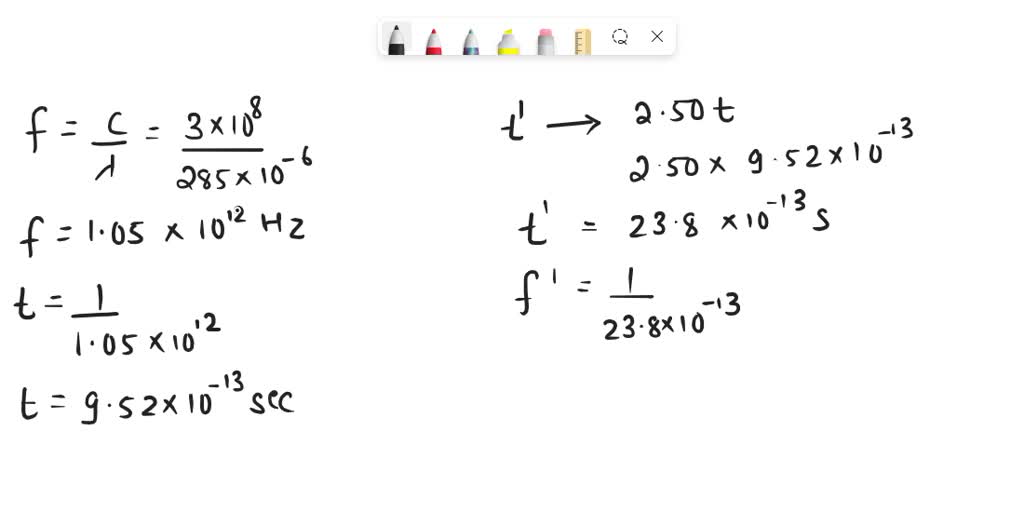 f = c/λ = 3×10^8 / 285×10^-6
f = 1.05 × 10^12 Hz
t = 1 / 1.05 × 10^12
t = 9.52×10^-13 sec
t' → 2.50 t
2.50 × 9.52×10^-13
t' = 23.8 ×10^-13 s
f' = 1 / 23.8×10^-13